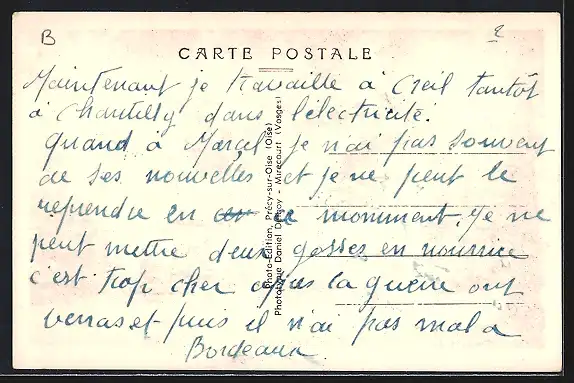 B
2
CARTE POSTALE
Maintenant je travaille à Creil tantôt
à Chantilly dans l'électricité.
quand a Marcel je n'ai pas souvent
de ses nouvelles et je ne peut le
reprendre en ce momment. Je ne
peut mettre deux gosses en nourrice
c'est trop cher après la guerre ont
verras et puis il n'ai pas mal a
Bordeaux.
Photo-Edition, Précy-sur-Oise (Oise)
Phototypie Daniel Delboy - Mirecourt (Vosges)